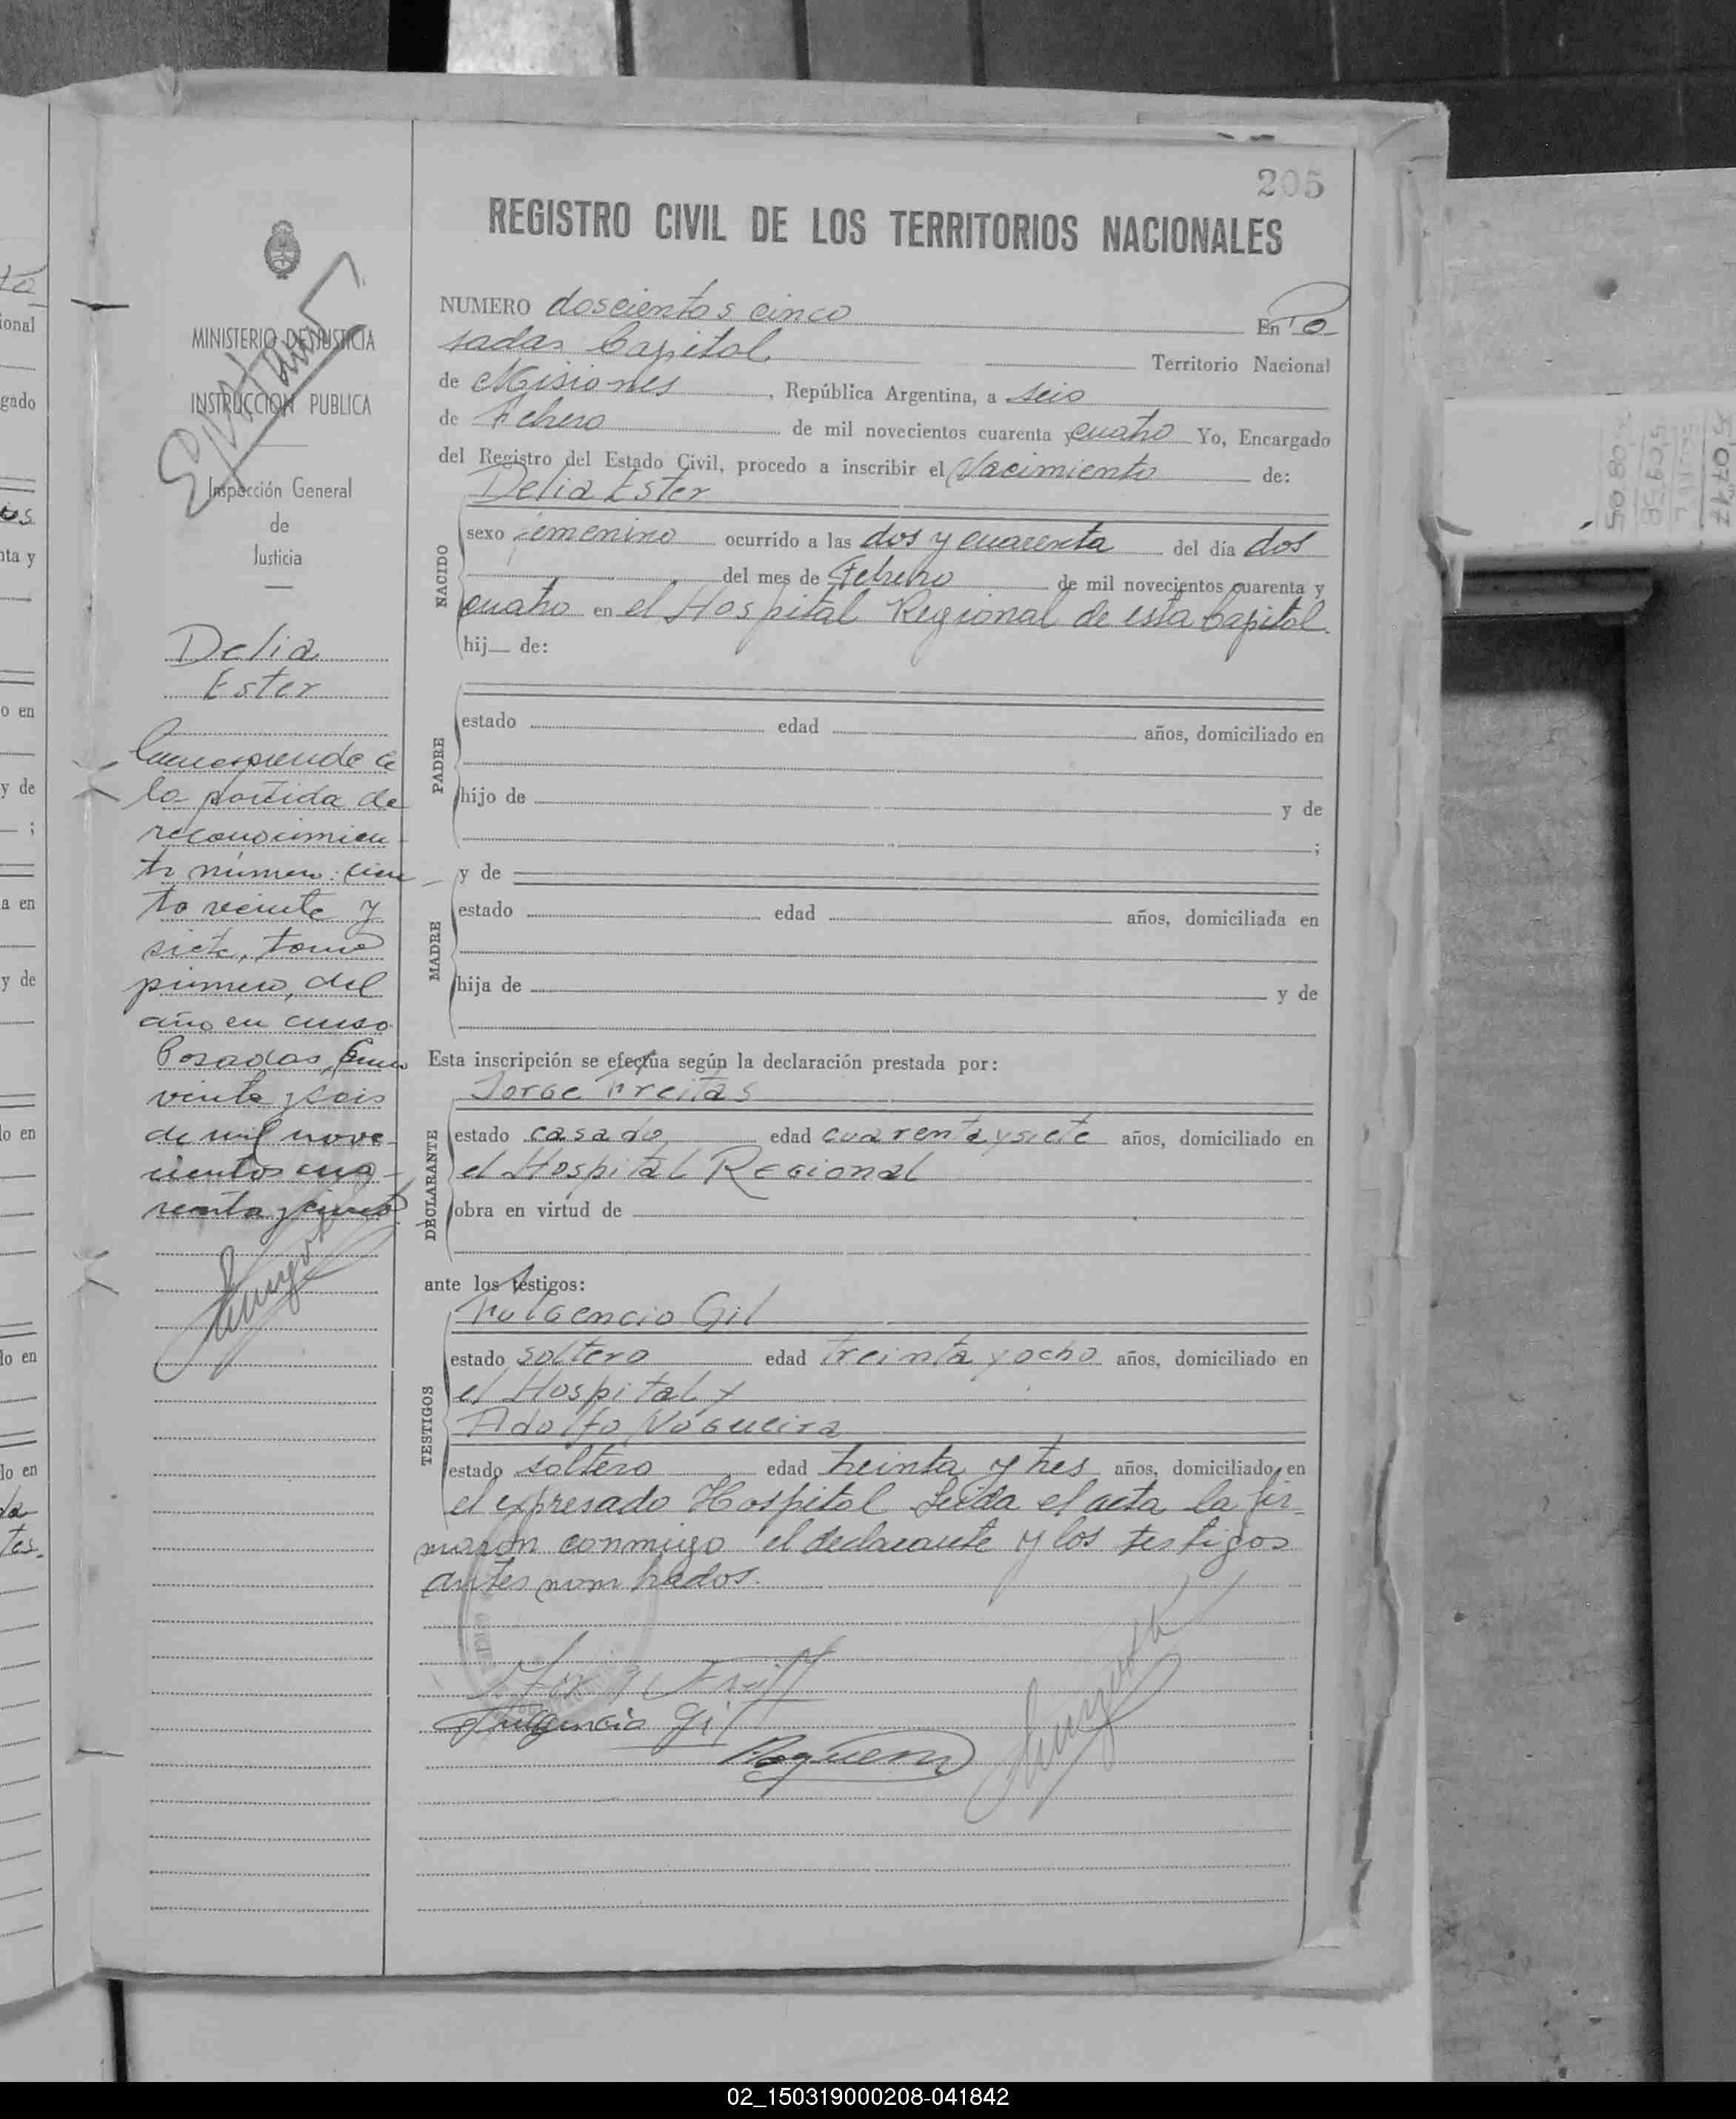 205
REGISTRO CIVIL DE LOS TERRITORIOS NACIONALES
NUMERO doscientos cinco En Po
sadas Capital Territorio Nacional
de Misiones, República Argentina, a seis
de Febrero de mil novecientos cuarenta y cuatro Yo, Encargado
del Registro del Estado Civil, procedo a inscribir el Nacimiento de:
Delia Ester
NACIDO
sexo femenino ocurrido a las dos y cuarenta del día dos
del mes de Febrero de mil novecientos cuarenta y
cuatro en el Hospital Regional de esta Capital.
hij de:
PADRE
estado edad años, domiciliado en
hijo de y de
;
y de
MADRE
estado edad años, domiciliada en
hija de y de
Esta inscripción se efectúa según la declaración prestada por:
Jorge Freitas
DECLARANTE
estado casado edad cuarenta y siete años, domiciliado en
el Hospital Regional
obra en virtud de
ante los testigos:
Fulgencio Gil
TESTIGOS
estado soltero edad treinta y ocho años, domiciliado en
el Hospital y
Adolfo Nogueira
estado soltero edad treinta y tres años, domiciliado en
el expresado Hospital Leida el acta la fir-
maron conmigo el declarante y los testigos
antes nombrados.
Fulgencio Gil
MINISTERIO DE JUSTICIA
INSTRUCCION PUBLICA
Inspección General
de
Justicia
Delia
Ester
Corresponde a
la partida de
reconocimien-
to número cien-
to veinte y
siete, tomo
primero, del
año en curso
Posadas, Enero
veinte y seis
de mil nove-
cientos cua-
renta y cinco
02_150319000208-041842